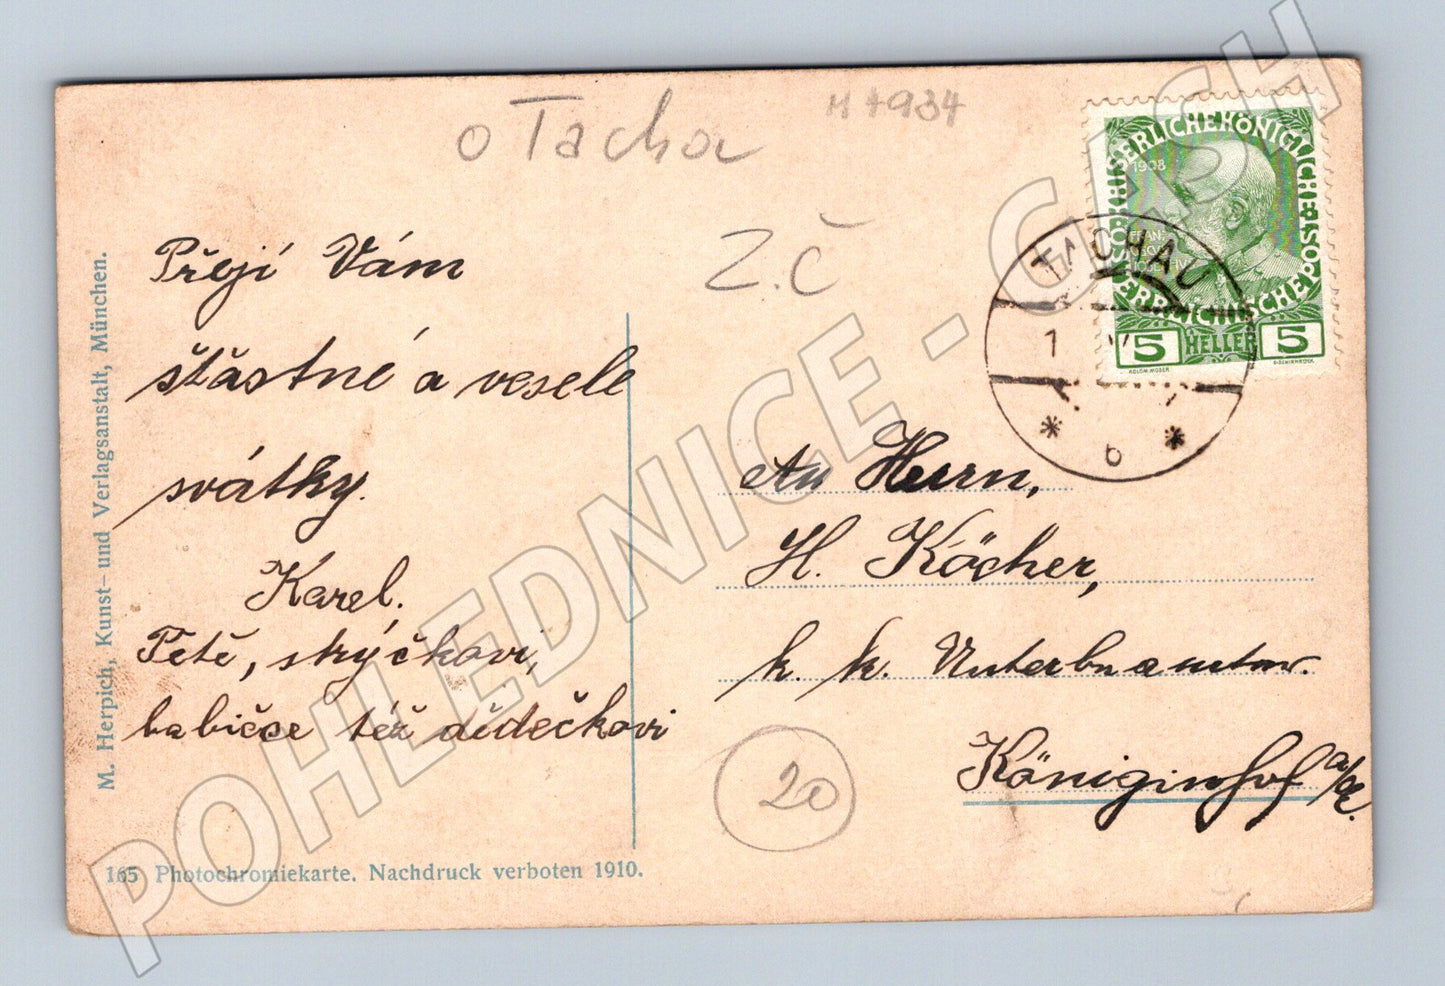 o Tacha
M 4934
Z.Č
Přejí Vám
šťastné a vesele
svátky.
Karel.
Tetě, strýčkovi,
babičce též dědečkovi
M. Herpich, Kunst- und Verlagsanstalt, München.
165 Photochromiekarte. Nachdruck verboten 1910.
KAISERLICHE KÖNIGLICHE
ÖSTERREICHISCHE POST
1908
5 HELLER 5
KOLOM. MOSER
TACHAU
1
* b *
An Herrn,
H. Köcher,
k. k. Unterbeamter.
Königinhof a/E.
20
POHLEDNICE - CASH